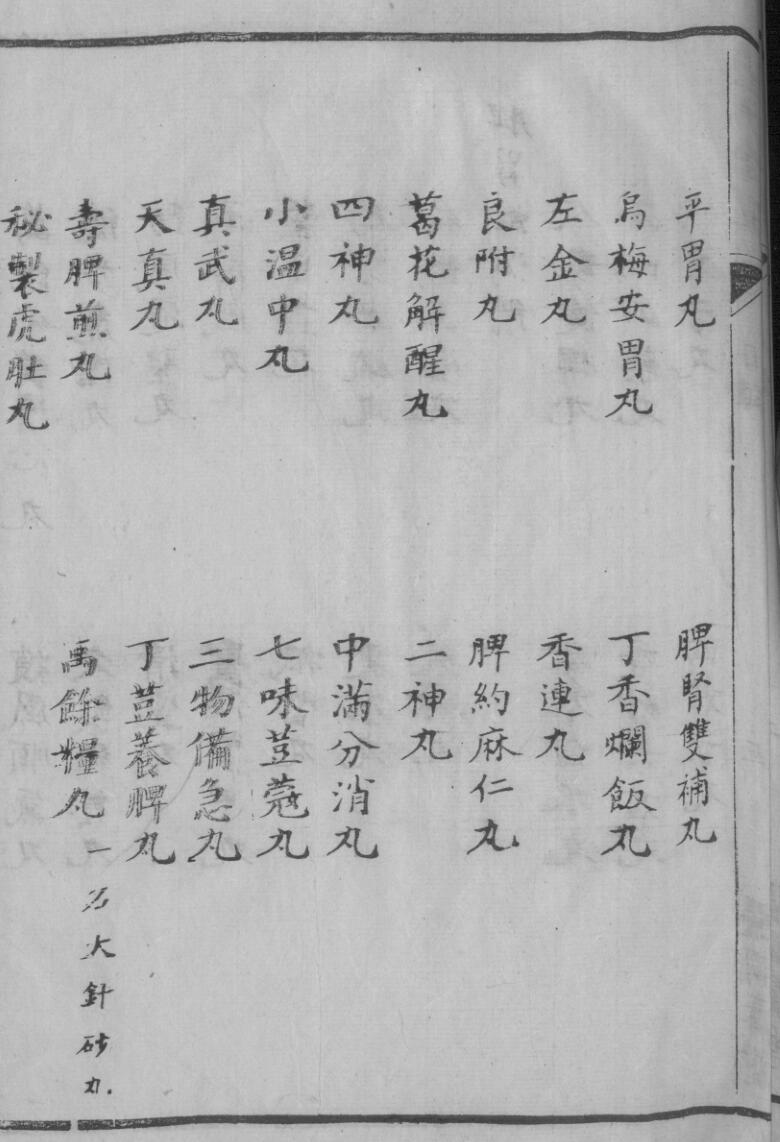 平胃丸
脾腎雙補丸
烏梅安胃丸
丁香爛飯丸
左金丸
香連丸
良附丸
脾約麻仁丸
葛花解醒丸
二神丸
四神丸
中滿分消丸
小温中丸
七味荳蔻丸
真武丸
三物備急丸
天真丸
丁荳養脾丸
壽脾煎丸
禹餘糧丸 一名大針砂丸
秘製虎肚丸